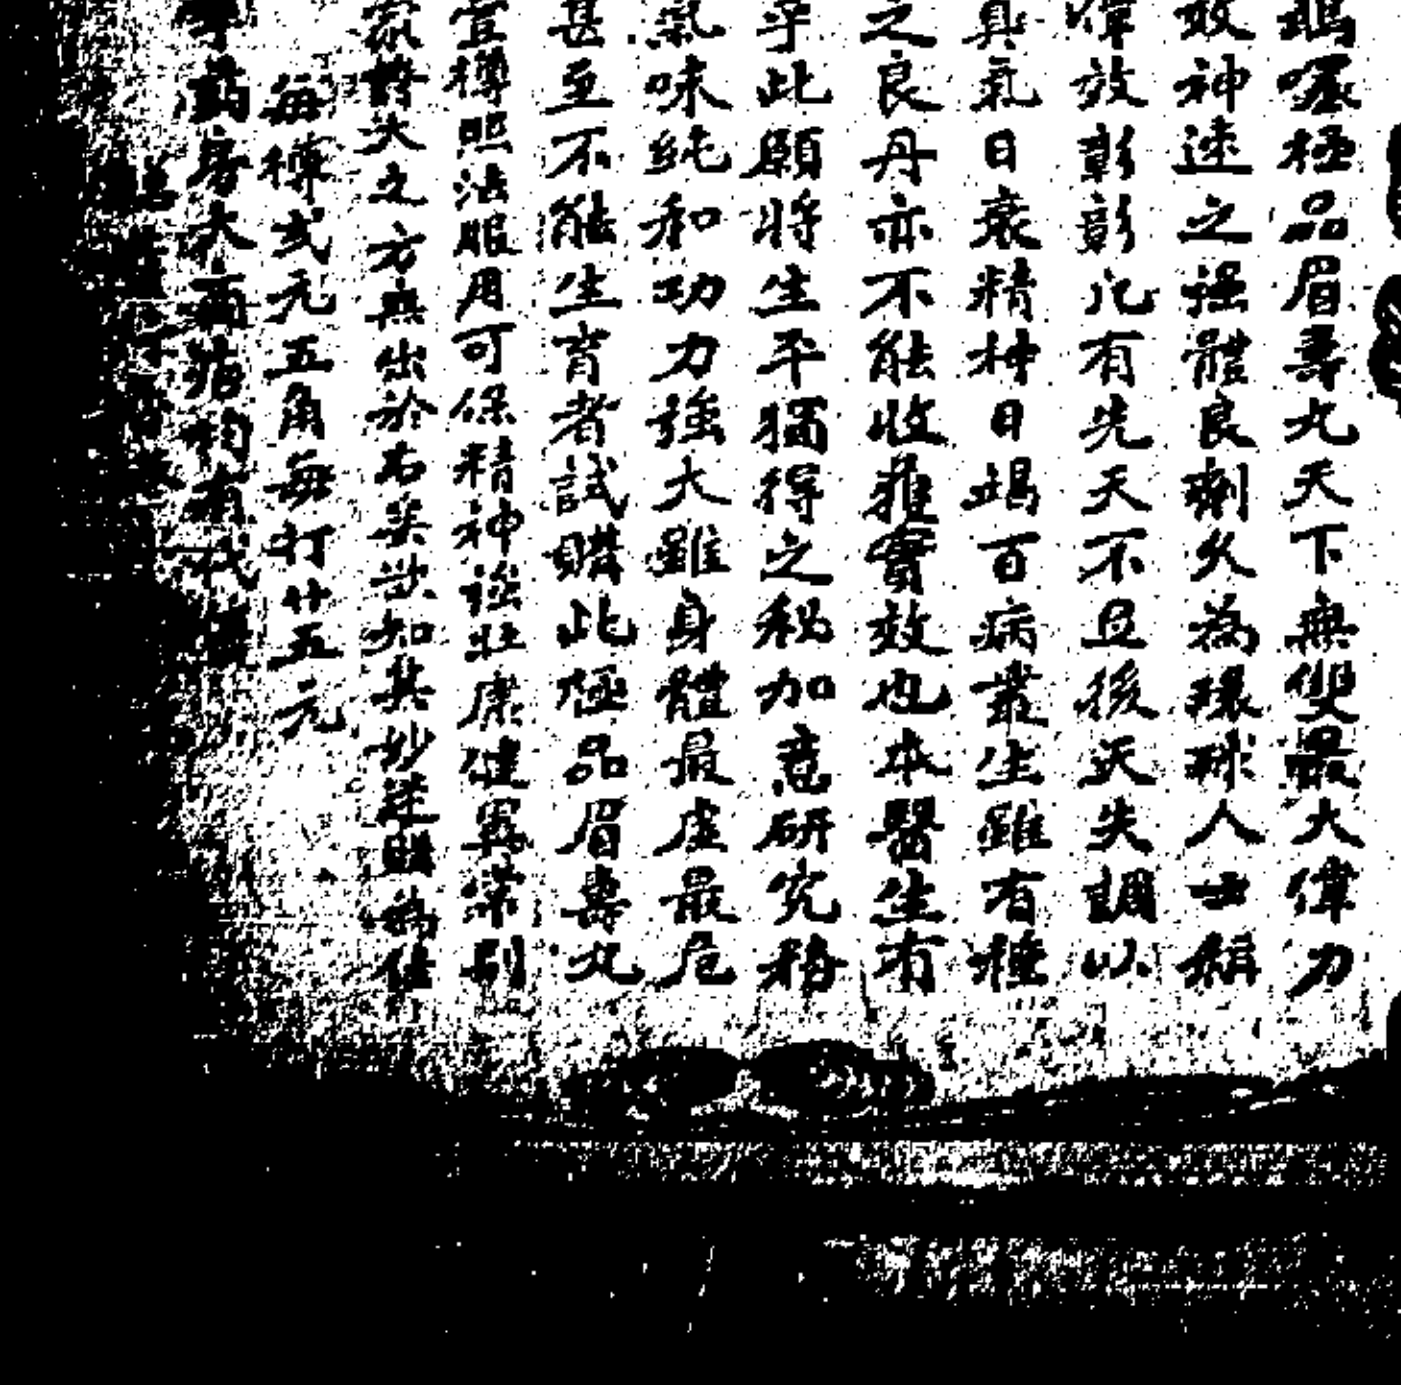 囉極品眉壽丸天下無雙最大偉力
效神速之强體良劑久為環球人士稱
偉效彰彰凡有先天不足後天失調以
真氣日衰精神日竭百病叢生雖有種
之良丹亦不能收獲實效也本醫生有
乎此願將生平獨得之秘加意研究務
氣味純和功力強大雖身體最虛最危
甚至不能生育者試購此極品眉壽丸
壹樽照法服用可保精神強壯康健異常別
家誇大之方無出於右矣欲知其妙速購為佳
每樽弍元五角每打廿五元
藥房大商店均有代售